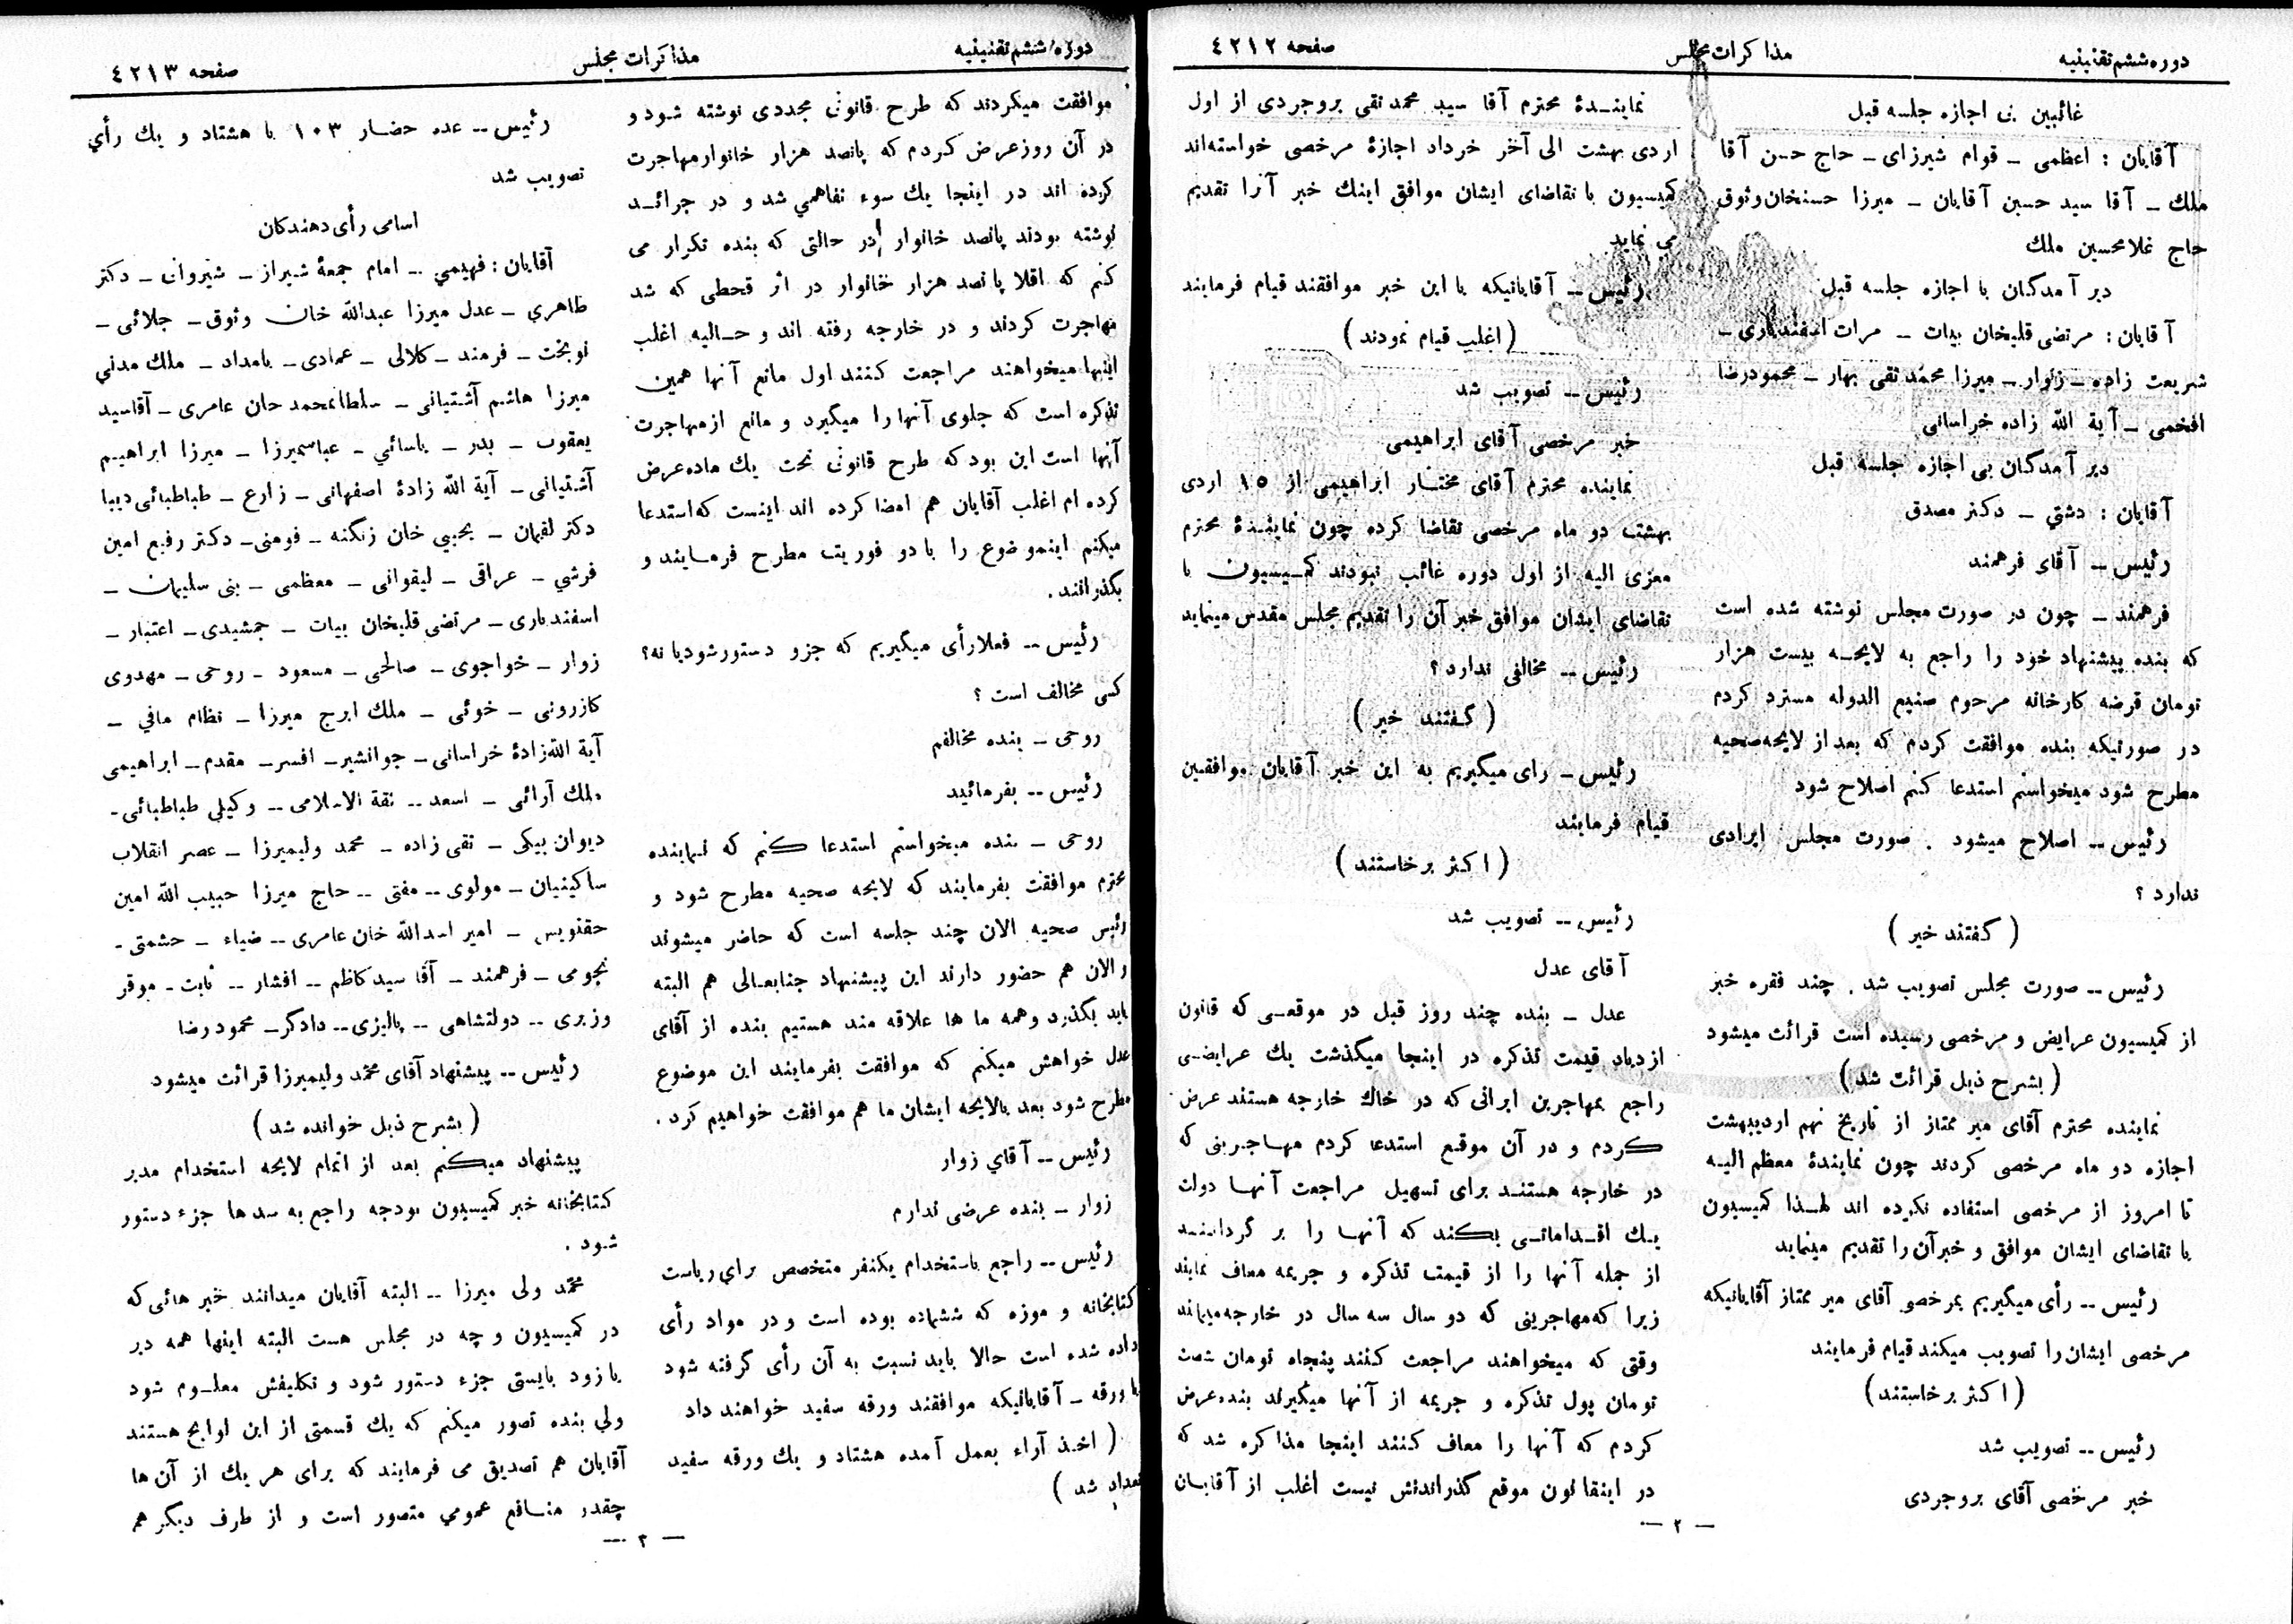 دوره ششم تقنینیه
مذاکرات مجلس
صفحه ٤٢١٢
غائبین بی اجازه جلسه قبل
آقایان : اعظمی ـ قوام شیرازی ـ حاج حسن آقا
ملك ـ آقا سید حسین آقایان ـ میرزا حسنخان وثوق
حاج غلامحسین ملك
دیر آمدگان با اجازه جلسه قبل
آقایان : مرتضی قلیخان بیات ـ مرآت اسفندیاری ـ
شریعت زاده ـ زوار ـ میرزا محمد تقی بهار ـ محمود رضا
افخمی ـ آیة الله زاده خراسانی
دیر آمدگان بی اجازه جلسه قبل
آقایان : دشتي ـ دکتر مصدق
رئیس ـ آقای فرهمند
فرهمند ـ چون در صورت مجلس نوشته شده است
که بنده پیشنهاد خود را راجع به لایحه بیست هزار
تومان قرضه کارخانه مرحوم صنیع الدوله مسترد کردم
در صورتیکه بنده موافقت کردم که بعد از لایحه صحیه
مطرح شود میخواستم استدعا کنم اصلاح شود
رئیس ـ اصلاح میشود . صورت مجلس ایرادی
ندارد ؟
( گفتند خیر )
رئیس ـ صورت مجلس تصویب شد . چند فقره خبر
از کمیسیون عرایض و مرخصی رسیده است قرائت میشود
( بشرح ذیل قرائت شد )
نماینده محترم آقای میر ممتاز از تاریخ نهم اردیبهشت
اجازه دو ماه مرخصی کردند چون نمایندۀ معظم الیه
تا امروز از مرخصی استفاده نکرده اند لهذا کمیسیون
با تقاضای ایشان موافق و خبر آن را تقدیم مینماید
رئیس ـ رأی میگیریم بمرخصی آقای میر ممتاز آقایانیکه
مرخصی ایشان را تصویب میکند قیام فرمایند
( اکثر برخاستند )
رئیس ـ تصویب شد
خبر مرخصی آقای بروجردی
نمایندۀ محترم آقا سید محمد تقی بروجردی از اول
اردی بهشت الی آخر خرداد اجازۀ مرخصی خواسته‌اند
کمیسیون با تقاضای ایشان موافق اینك خبر آنرا تقدیم
می نماید
رئیس ـ آقایانیکه با این خبر موافقند قیام فرمایند
( اغلب قیام نمودند )
رئیس ـ تصویب شد
خبر مرخصی آقای ابراهیمی
نماینده محترم آقای مختار ابراهیمی از ١٥ اردی
بهشت دو ماه مرخصی تقاضا کرده چون نمایندۀ محترم
معزی الیه از اول دوره غائب نبودند کمیسیون با
تقاضای ایشان موافق خبر آن را تقدیم مجلس مقدس مینماید
رئیس ـ مخالفی ندارد ؟
( گفتند خیر )
رئیس ـ رای میگیریم به این خبر آقایان موافقین
قیام فرمایند
( اکثر برخاستند )
رئیس ـ تصویب شد
آقای عدل
عدل ـ بنده چند روز قبل در موقعی که قانون
ازدیاد قیمت تذکره در اینجا میگذشت یك عرایضی
راجع بمهاجرین ایرانی که در خاك خارجه هستند عرض
کردم و در آن موقع استدعا کردم مهاجرینی که
در خارجه هستند برای تسهیل مراجعت آنها دولت
یك اقداماتی بکند که آنها را بر گردانند
از جمله آنها را از قیمت تذکره و جریمه معاف نمایند
زیرا که مهاجرینی که دو سال سه سال در خارجه میمانند
وقتی که میخواهند مراجعت کنند پنجاه تومان شصت
تومان پول تذکره و جریمه از آنها میگیرند بنده عرض
کردم که آنها را معاف کنند اینجا مذاکره شد که
در اینقانون موقع گذراندنش نیست اغلب از آقایان
— ٢ —
دوره ششم تقنینیه
مذاکرات مجلس
صفحه ٤٢١٣
موافقت میکردند که طرح قانونی مجددی نوشته شود و
در آن روز عرض کردم که پانصد هزار خانوار مهاجرت
کرده اند در اینجا یك سوء تفاهمي شد و در جرائد
نوشته بودند پانصد خانوار در حالتی که بنده تکرار می
کنم که اقلا پانصد هزار خانوار در اثر قحطی که شد
مهاجرت کردند و در خارجه رفته اند و حالیه اغلب
اینها میخواهند مراجعت کنند اول مانع آنها همین
تذکره است که جلوی آنها را میگیرد و مانع از مهاجرت
آنها است این بود که طرح قانونی تحت یك ماده عرض
کرده ام اغلب آقایان هم امضا کرده اند اینست که استدعا
میکنم اینموضوع را با دو فوریت مطرح فرمایند و
بگذرانند .
رئیس ـ فعلا رأی میگیریم که جزو دستور شود یا نه ؟
کسی مخالف است ؟
روحی ـ بنده مخالفم
رئیس ـ بفرمائید
روحی ـ بنده میخواستم استدعا کنم که نماینده
محترم موافقت بفرمایند که لایحه صحیه مطرح شود و
رئیس صحیه الان چند جلسه است که حاضر میشوند
والان هم حضور دارند این پیشنهاد جنابعالی هم البته
باید بگذرد و همه ما ها علاقه مند هستیم بنده از آقای
عدل خواهش میکنم که موافقت بفرمایند این موضوع
مطرح شود بعد بالایحه ایشان ما هم موافقت خواهیم کرد .
رئیس ـ آقاي زوار
زوار ـ بنده عرضی ندارم
رئیس ـ راجع باستخدام یکنفر متخصص برای ریاست
کتابخانه و موزه که ششماده بوده است و در مواد رأی
داده شده است حالا باید نسبت به آن رأی گرفته شود
با ورقه ـ آقایانیکه موافقند ورقه سفید خواهند داد
( اخذ آراء بعمل آمده هشتاد و یك ورقه سفید
تعداد شد )
رئیس ـ عده حضار ١٠٣ با هشتاد و یك رأي
تصویب شد
اسامی رأی دهندگان
آقایان : فهیمي ـ امام جمعۀ شیراز ـ شیروانی ـ دکتر
طاهري ـ عدل میرزا عبدالله خان وثوق ـ جلائی ـ
نوبخت ـ فرمند ـ کلالی ـ عمادی ـ بامداد ـ ملك مدني
میرزا هاشم آشتیانی ـ سلطانمحمد خان عامری ـ آقاسید
یعقوب ـ بدر ـ یاسائي ـ عباسمیرزا ـ میرزا ابراهیم
آشتیانی ـ آیة الله زادۀ اصفهانی ـ زارع ـ طباطبائی دیبا
دکتر لقمان ـ یحیی خان زنگنه ـ فومنی ـ دکتر رفیع امین
فرشي ـ عراقی ـ لیقوانی ـ معظمی ـ بنی سلیمان ـ
اسفندیاری ـ مرتضی قلیخان بیات ـ جمشیدی ـ اعتبار ـ
زوار ـ خواجوی ـ صالحی ـ مسعود ـ روحی ـ مهدوی
کازرونی ـ خوئی ـ ملك ایرج میرزا ـ نظام مافي ـ
آیة الله‌زادۀ خراسانی ـ جوانشیر ـ افسر ـ مقدم ـ ابراهیمی
ملك آرائی ـ اسعد ـ ثقة الاسلامی ـ وکیلی طباطبائی ـ
دیوان بیگی ـ تقی زاده ـ محمد ولیمیرزا ـ عصر انقلاب
ساکینیان ـ مولوی ـ مفتی ـ حاج میرزا حبیب الله امین
حقنویس ـ امیر اسدالله خان عامری ـ ضیاء ـ حشمتی ـ
نجومی ـ فرهمند ـ آقا سید کاظم ـ افشار ـ ثابت ـ موقر
وزیری ـ دولتشاهی ـ پالیزی ـ دادگر ـ محمود رضا
رئیس ـ پیشنهاد آقای محمد ولیمیرزا قرائت میشود
( بشرح ذیل خوانده شد )
پیشنهاد میکنم بعد از اتمام لایحه استخدام مدیر
کتابخانه خبر کمیسیون بودجه راجع به سدها جزء دستور
شود .
محمد ولی میرزا ـ البته آقایان میدانند خبر هائی که
در کمیسیون و چه در مجلس هست البته اینها همه دیر
یا زود بایستی جزء دستور شود و تکلیفش معلوم شود
ولي بنده تصور میکنم که یك قسمتی از این لوایح هستند
آقایان هم تصدیق می فرمایند که برای هر یك از آن ها
چقدر منافع عمومي متصور است و از طرف دیگر هم
— ٣ —